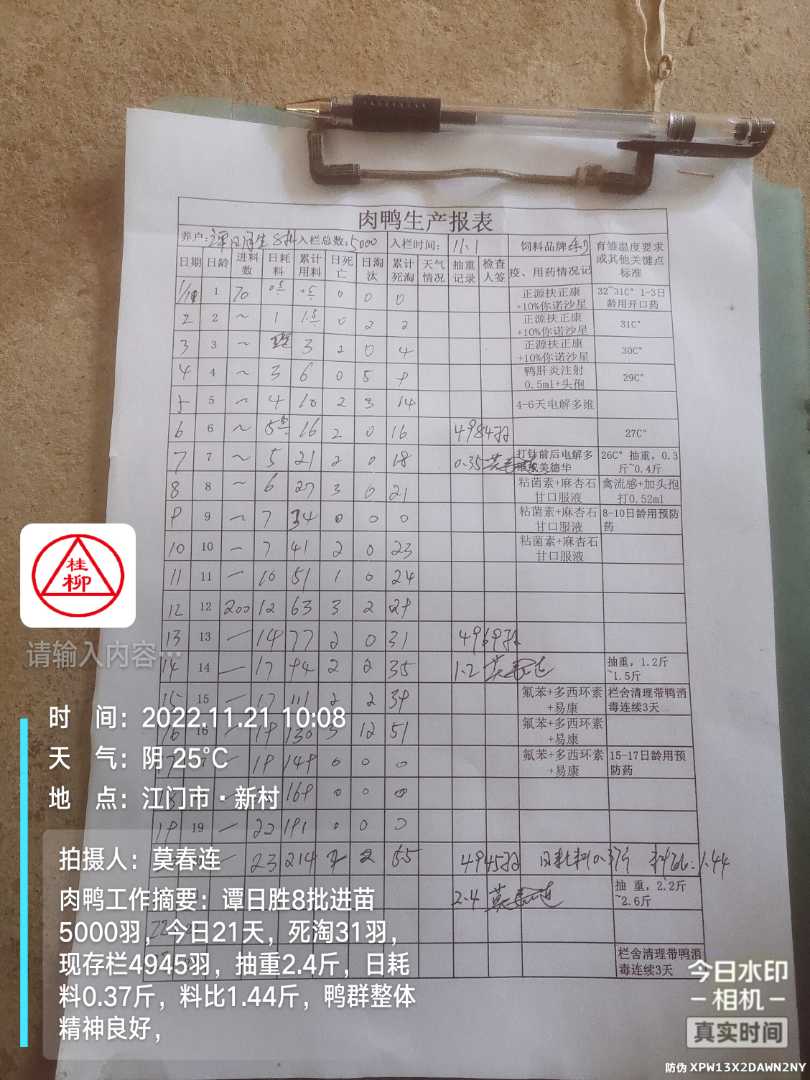 肉鸭生产报表
养户: 8批 入栏总数: 5000 入栏时间: 11.1 饲料品牌 育雏温度要求或其他关键点标准
日期 日龄 进料数 日耗料 累计用料 日死亡 日淘汰 累计死淘 天气情况 抽重记录 检查人签 疫、用药情况记
1 70 0 0 0 正源扶正康+10%你诺沙星 32~31C° 1-3日龄用开口药
2 2 ~ 1 0 2 2 正源扶正康+10%你诺沙星 31C°
3 3 ~ 3 2 0 4 正源扶正康+10%你诺沙星 30C°
4 4 ~ 3 6 0 5 9 鸭肝炎注射0.5ml+头孢 29C°
5 5 ~ 4 10 2 3 14 4-6天电解多维
6 6 ~ 16 2 0 16 4984羽 27C°
7 7 ~ 5 21 2 0 18 0.35 莫春连 打针前后电解多 26C° 抽重，0.3斤~0.4斤
8 8 ~ 6 27 3 0 21 粘菌素+麻杏石甘口服液 禽流感+加头孢打0.52ml
9 9 – 7 34 0 0 0 粘菌素+麻杏石甘口服液 8-10日龄用预防药
10 10 – 7 41 2 0 23 粘菌素+麻杏石甘口服液
11 11 – 10 51 1 0 24
12 12 200 12 63 3 2 29
13 13 – 14 77 2 0 31 4969羽
14 14 – 17 94 2 2 35 1.2 莫春连 抽重，1.2斤~1.5斤
15 15 – 17 111 2 2 39 氟苯+多西环素+易康 栏舍清理带鸭消毒连续3天
16 16 – 19 130 3 12 51 氟苯+多西环素+易康
– 19 149 0 0 0 氟苯+多西环素+易康 15-17日龄用预防药
169 0 0 0
19 19 – 22 191 0 0 0
– 23 214 2 2 55 4945羽 日耗料0.37斤 料比:1.44
2.4 莫春连 抽重，2.2斤~2.6斤
22
栏舍清理带鸭消毒连续3天
桂柳
请输入内容…
时 间：2022.11.21 10:08
天 气：阴 25℃
地 点：江门市·新村
拍摄人：莫春连
肉鸭工作摘要：谭日胜8批进苗
5000羽，今日21天，死淘31羽，
现存栏4945羽，抽重2.4斤，日耗
料0.37斤，料比1.44斤，鸭群整体
精神良好，
今日水印
–相机–
真实时间
防伪 XPW13X2DAWN2NY